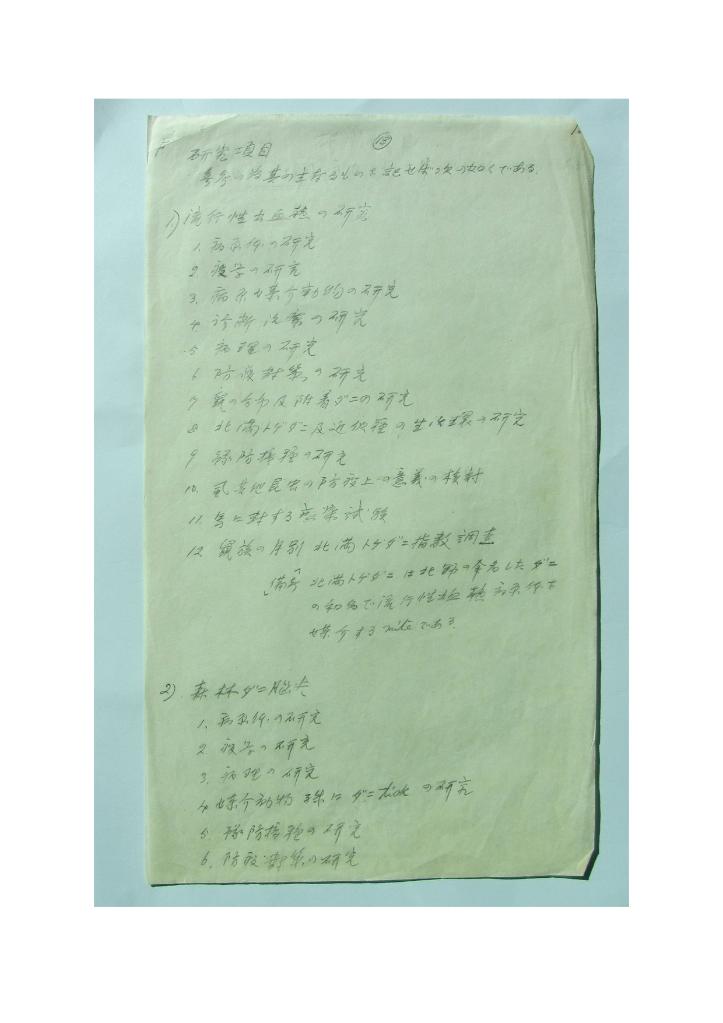 ⑬
研究項目
1) 流行性出血熱の研究
1. 病原体の研究
2. 疫学の研究
3. 病原媒介動物の研究
4. 診断治療の研究
5. 病理の研究
6. 防疫対策の研究
7. 鼠の分布及附着ダニの研究
8. 北満トゲダニ及近似種の生活環の研究
9. 予防接種の研究
10. 虱其他昆虫の防疫上の意義の検討
11. 馬に対する感染試験
12. 鼠族の月別北満トゲダニ指数調査
備考 北満トゲダニは北野の命名したダニ
の和名で流行性出血熱病原体を
媒介するmiteである。
2) 森林ダニ脳炎
1. 病原体の研究
2. 疫学の研究
3. 病理の研究
4. 媒介動物 殊にダニ tick の研究
5. 予防接種の研究
6. 防疫対策の研究